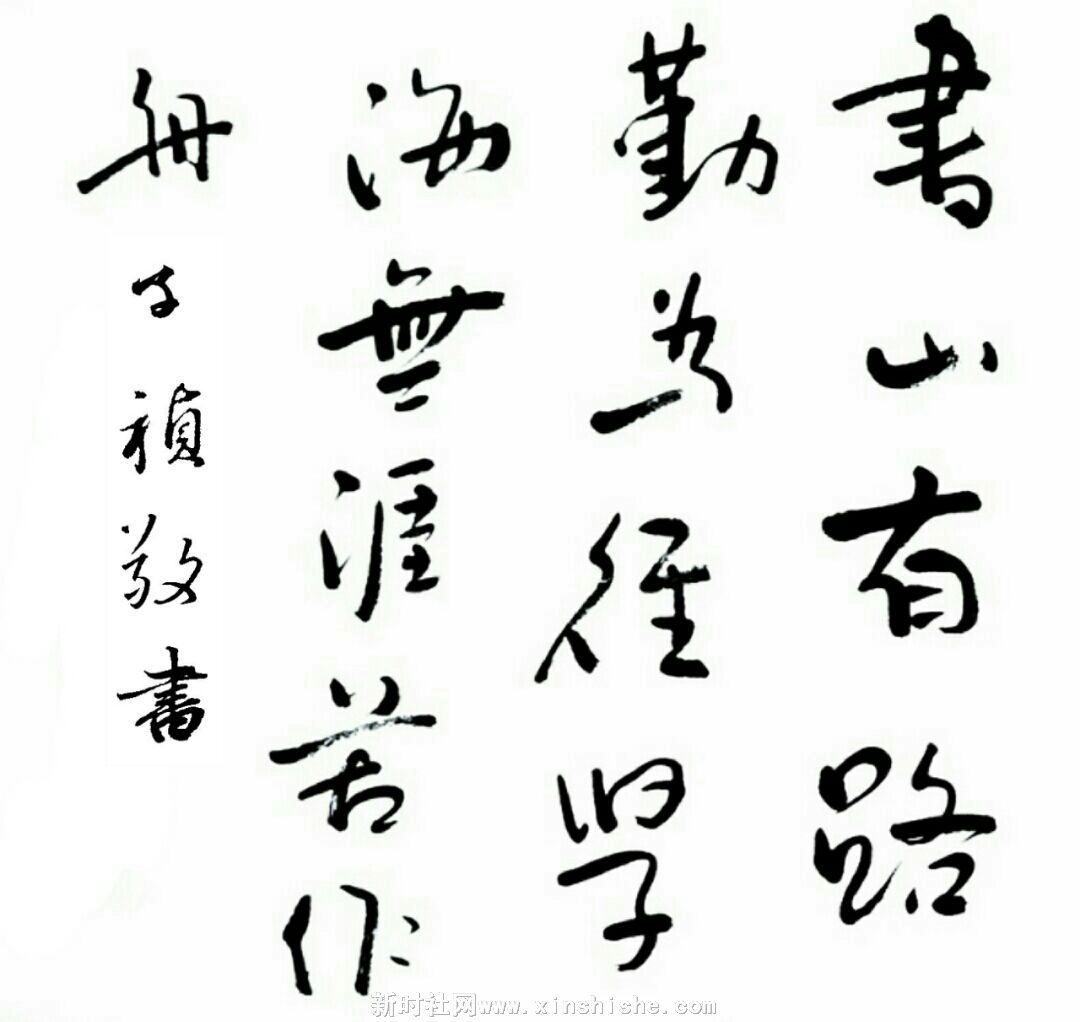 書山有路
勤為徑學
海無涯苦作
舟
子禎敬書
新时社网www.xinshishe.com